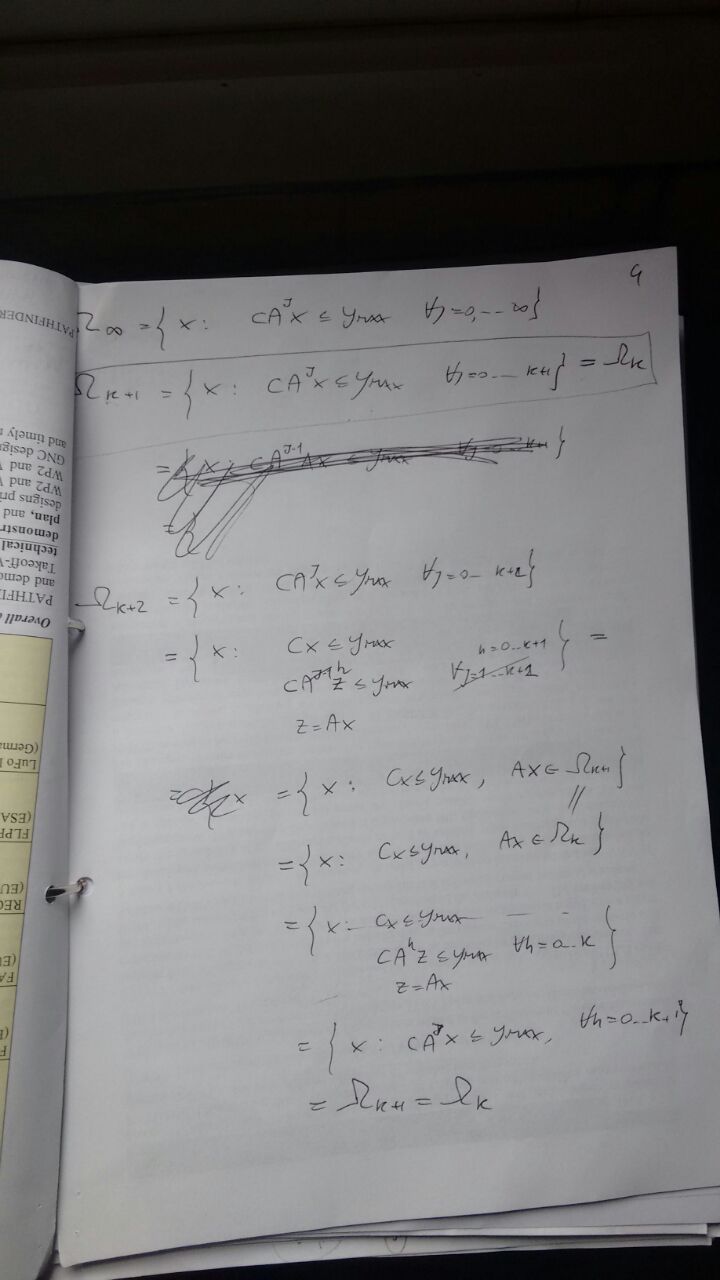 9
Ω∞ = { x : CA^J x ≤ ymax ∀J=0,...∞}
Ωk+1 = { x : CA^J x ≤ ymax ∀J=0... k+1} = Ωk
= { x : CA^J-1 Ax ≤ ymax ∀J=0...k+1 }
=
Ωk+2 = { x : CA^J x ≤ ymax ∀J=0.. k+2}
= { x : Cx ≤ ymax h=0..k+1 } =
CA^h z ≤ ymax ∀J=1...k+2
z=Ax
= { x : Cx≤ymax, Ax∈ Ωk+1}
//
= { x : Cx≤ymax, Ax ∈ Ωk }
= { x : Cx ≤ ymax }
CA^h z ≤ ymax ∀h=0..k
z=Ax
= { x : CA^J x ≤ ymax, ∀h=0..k+1}
= Ωk+1 = Ωk
PATHFINDER
and timely
GNC design
WP2 and
WP2 and
designs
plan, and
demonstr
technical
Takeoff-
and demo
PATHFI
Overall
LuFo
(Germa
FLPP
(ESA
REC
(EU
FA
(EU